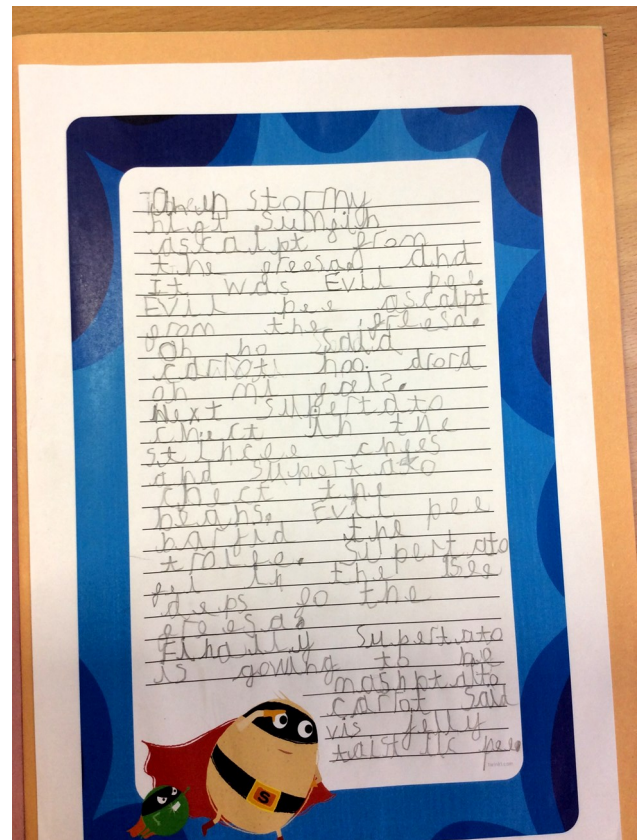 One stormy
nigt sumjigh
ascalpt from
the freesa and
It was Evil pee.
Evil pee ascalpt
from the freesa.
Oh no said
carrot hoo drord
on mi fael?.
Next Supertato
chect in the
stincee chees
and supertato
chect the
beans. Evil pee
harfid the
trolle. Supertato
in the
deps fo the
freesa.
Finally Supertato
is gowing to be
mashpt.atto
carlot said
vis jelly
twist lk pee.
S